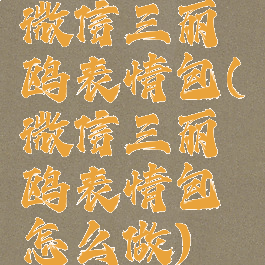 微信三丽
鸥表情包(
微信三丽
鸥表情包
怎么做)